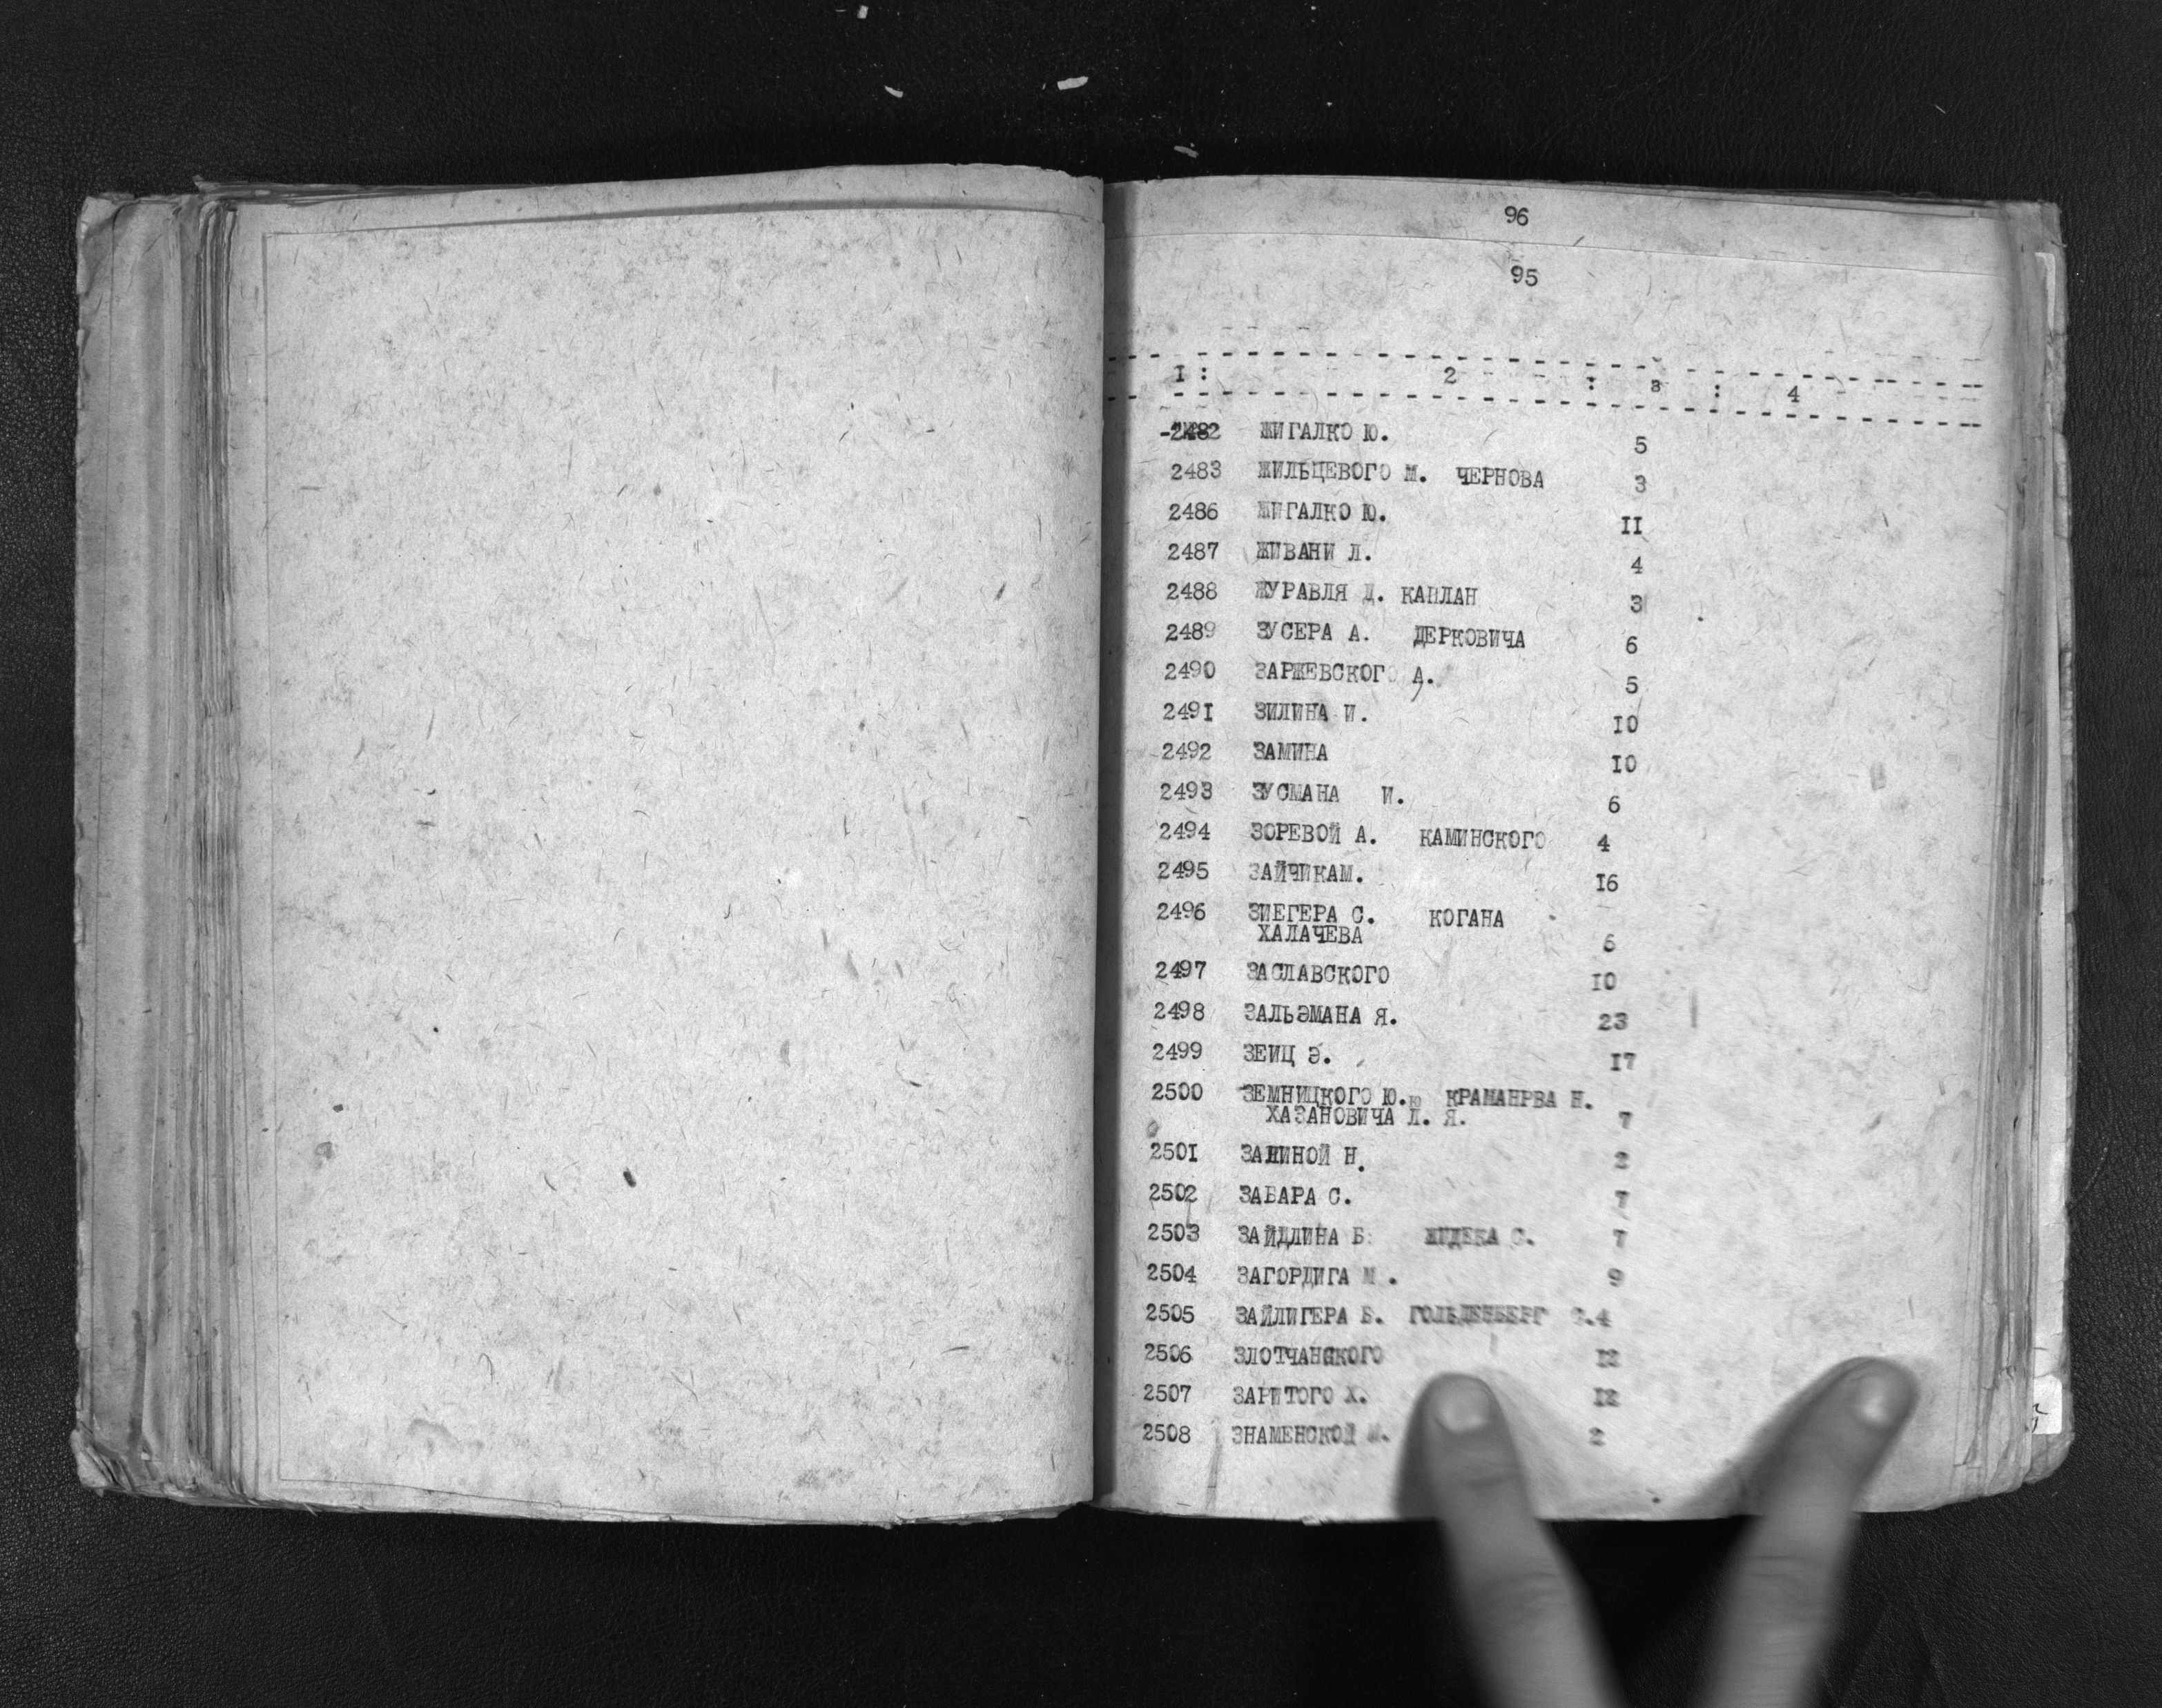 96
95
I : 2 : 3 : 4
-2482 ЖИГАЛКО Ю. 5
2483 ЖИЛЬЦЕВОГО М. ЧЕРНОВА 3
2486 ЖИГАЛКО Ю. II
2487 ЖИВАНИ Л. 4
2488 ЖУРАВЛЯ Д. КАПЛАН 3
2489 ЗУСЕРА А. ДЕРКОВИЧА 6
2490 ЗАРЖЕВСКОГО А. 5
2491 ЗИЛИНА И. I0
2492 ЗАМИНА I0
2493 ЗУСМАНА И. 6
2494 ЗОРЕВОЙ А. КАМИНСКОГО 4
2495 ЗАЙЧИКАМ. I6
2496 ЗИЕГЕРА С. КОГАНА
ХАЛАЧЕВА 6
2497 ЗАСЛАВСКОГО I0
2498 ЗАЛЬЭМАНА Я. 23
2499 ЗЕИЦ Э. I7
2500 ЗЕМНИЦКОГО Ю.ю КРАМАНРВА Н.
ХАЗАНОВИЧА Л. Я. 7
250I Н. 2
2502 ЗАБАРА С. 7
2503 ЗАЙДЛИНА Б. ЖИДЕКА С. 7
2504 ЗАГОРДИГА М. 9
2505 ЗАЙЛИГЕРА Б. ГОЛЬДЕНБЕРГ С.4
2506 ЗЛОТЧАНСКОГО I2
2507 ЗАРИТОГО Х. I2
2508 ЗНАМЕНСКОЙ М. 2